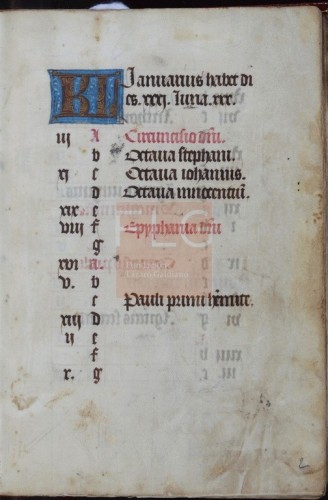 KL Januarius habet di
es. xxxi. luna. xxx.
iii A Circuncisio dni.
b Octaua stephani.
xi c Octaua iohannis.
d Octaua innocentiu.
xix e
viii f Epyphania dni
g
xvi a
v. b
c Pauli primi hemitę.
xiii d
ii e
f
x. g
2